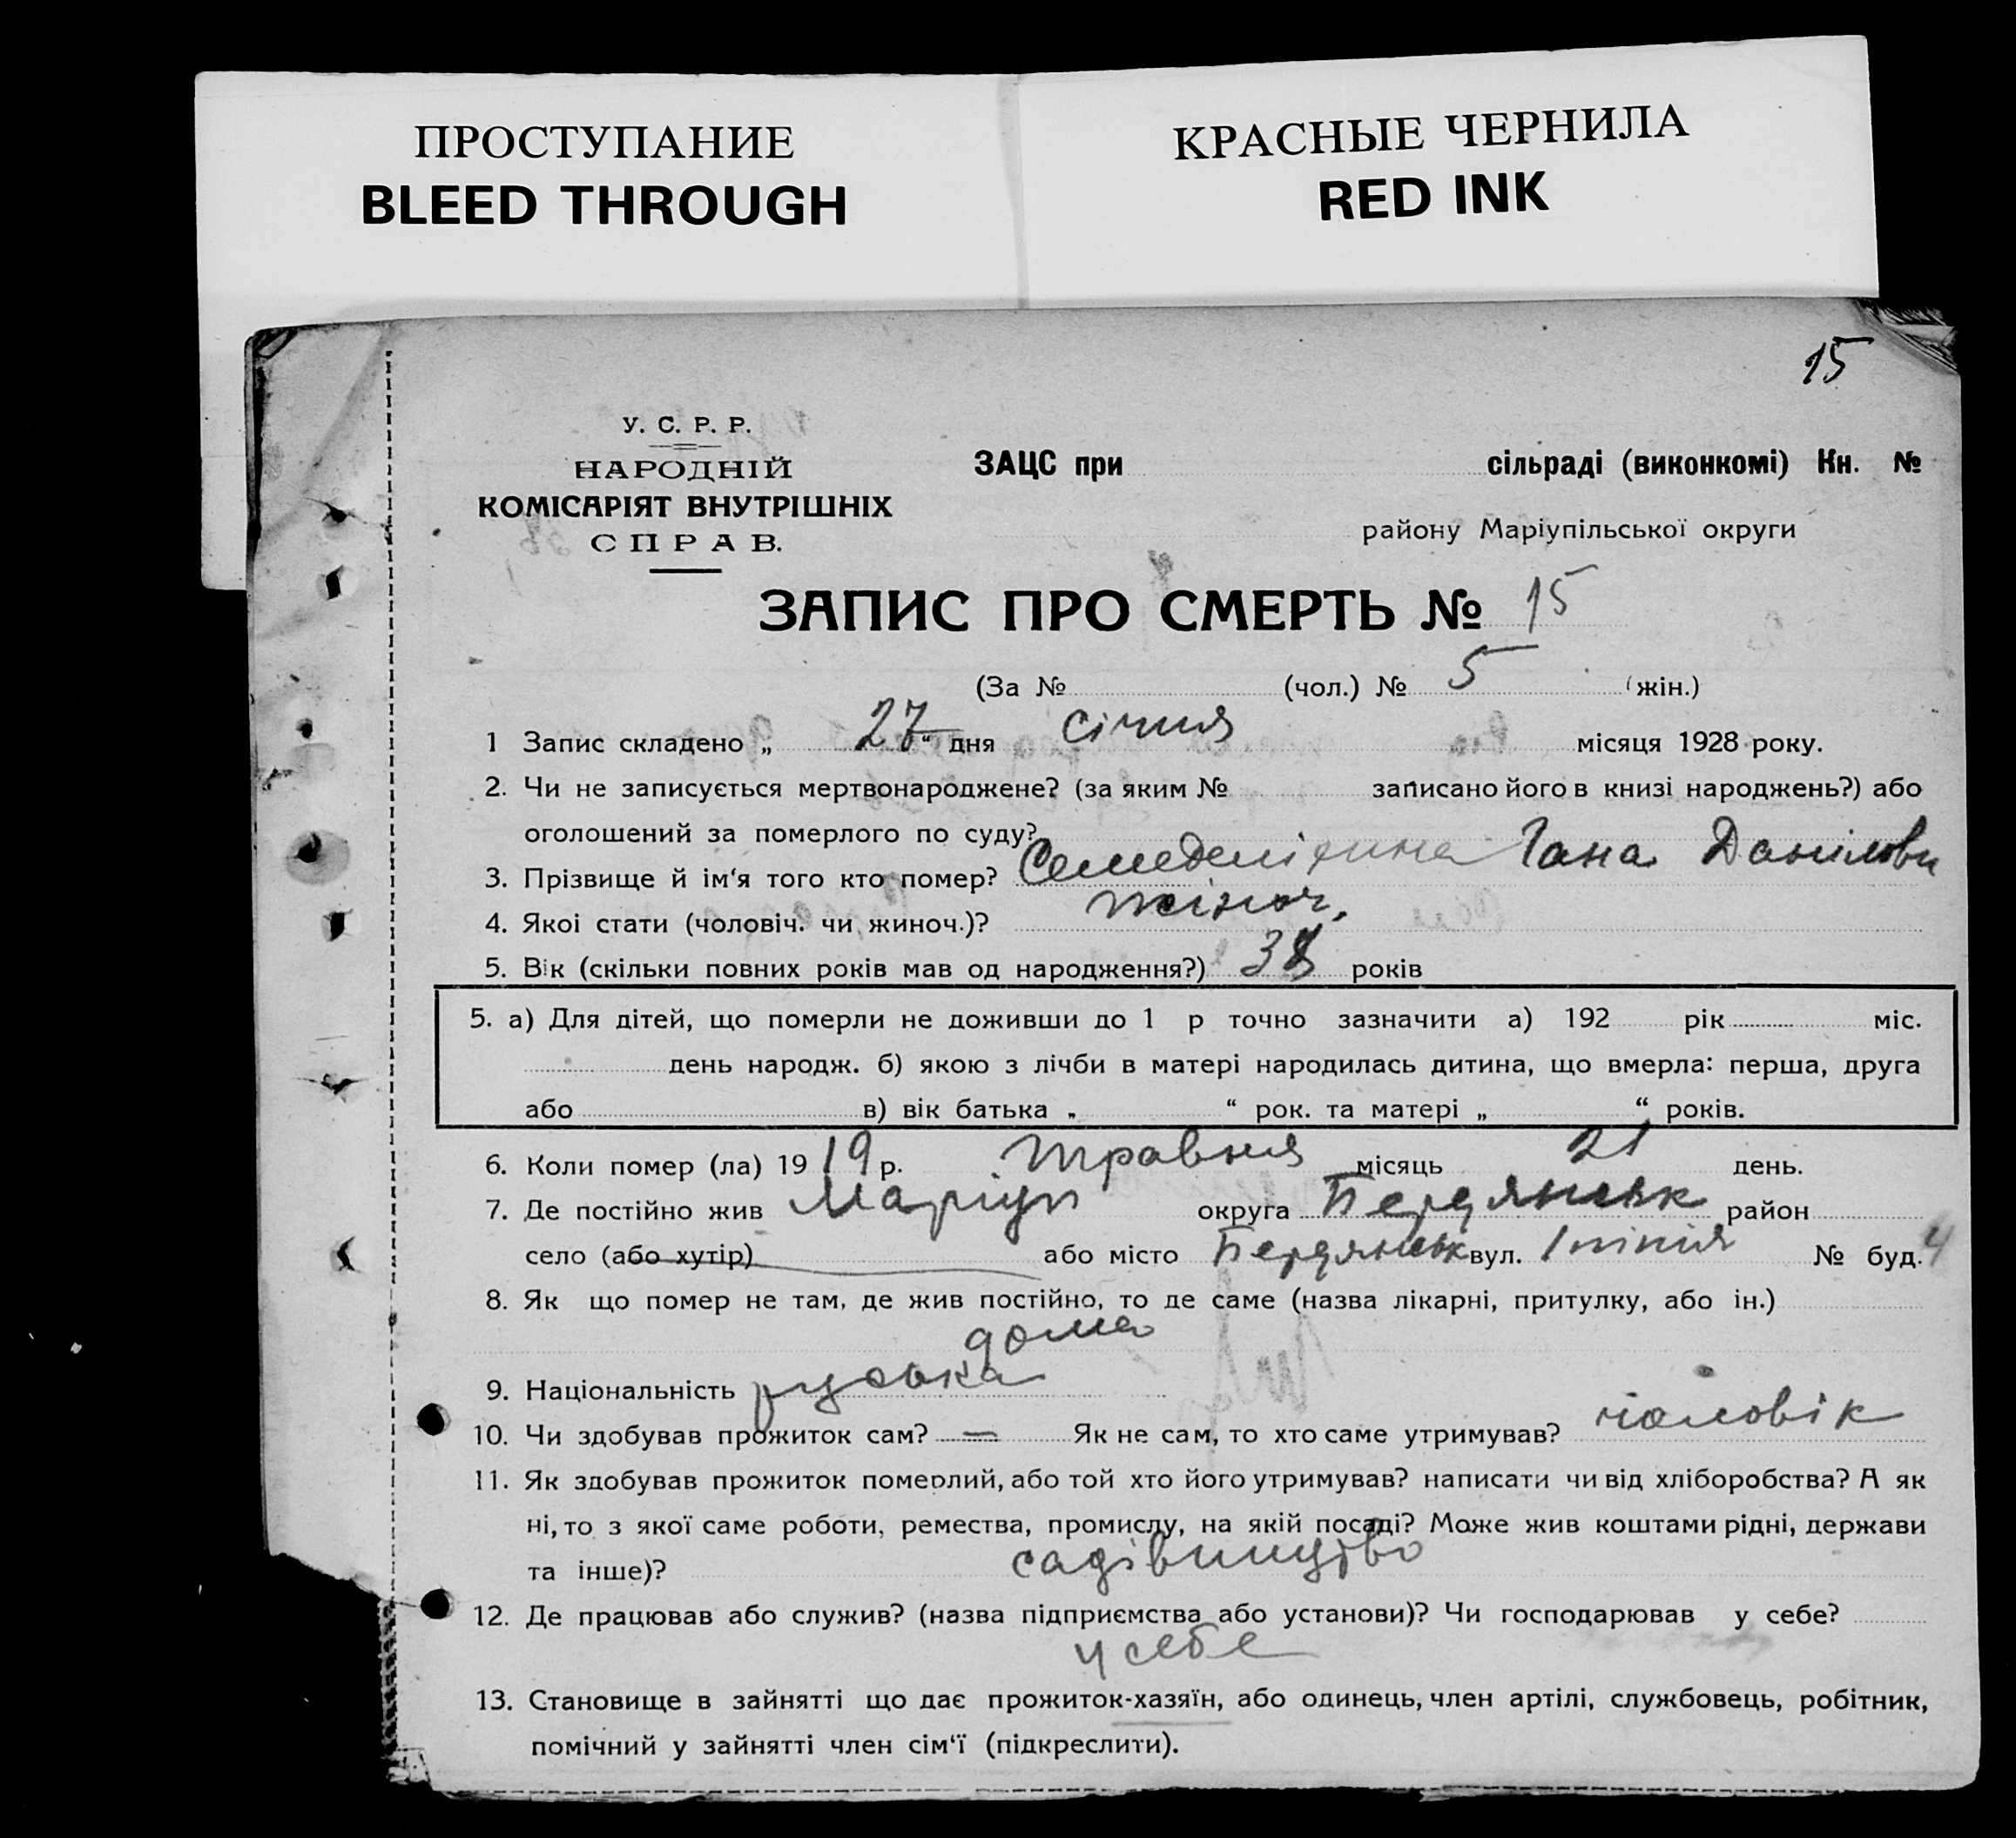 ПРОСТУПАНИЕ
BLEED THROUGH
КРАСНЫЕ ЧЕРНИЛА
RED INK
15
У. С. Р. Р.
НАРОДНІЙ
КОМІСАРІЯТ ВНУТРІШНІХ
СПРАВ.
ЗАЦС при сільраді (виконкомі) Кн. №
району Маріупільської округи
ЗАПИС ПРО СМЕРТЬ № 15
(За № (чол.) № 5 (жін.)
1 Запис складено „ 27 “ дня січня місяця 1928 року.
2. Чи не записується мертвонароджене? (за яким № записано його в книзі народжень?) або
оголошений за померлого по суду?
3. Прізвище й ім‘я того кто помер? Гана
4. Якоі стати (чоловіч. чи жиноч.)? жіноч.
5. Вік (скільки повних років мав од народження?) років
5. а) Для дітей, що померли не доживши до 1 р точно зазначити а) 192 рік міс.
день народж. б) якою з лічби в матері народилась дитина, що вмерла: перша, друга
або в) вік батька „ “ рок. та матері „ “ років.
6. Коли помер (ла) 19 19 р. травня місяць 21 день.
7. Де постійно жив Маріуп округа Бердянськ район
село (або хутір) або місто Бердянськ вул. № буд. 4
8. Як що помер не там, де жив постійно, то де саме (назва лікарні, притулку, або ін.)
дома
9. Національність руська
10. Чи здобував прожиток сам? — Як не сам, то хто саме утримував? чоловік
11. Як здобував прожиток померлий, або той хто його утримував? написати чи від хліборобства? А як
ні, то з якої саме роботи, ремества, промислу, на якій посаді? Може жив коштами рідні, держави
та інше)? садівництво
12. Де працював або служив? (назва підприємства або установи)? Чи господарював у себе?
у себе
13. Становище в зайнятті що дає прожиток-хазяїн, або одинець, член артілі, службовець, робітник,
помічний у зайнятті член сім‘ї (підкреслити).